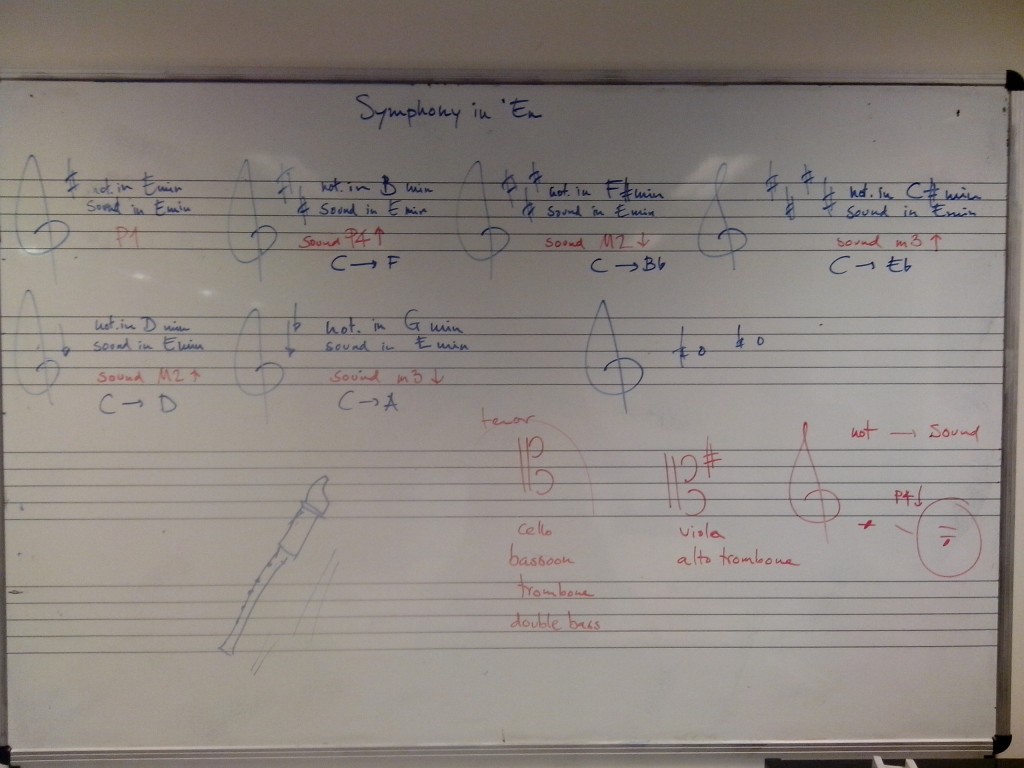 Symphony in Em
not. in Emin
sound in Emin
P1
not. in B min
sound in E min
sound P4↑
C → F
not. in F#min
sound in Emin
sound M2 ↓
C → Bb
not. in C# min
sound in Emin
sound m3 ↑
C → Eb
not. in D min
sound in Emin
sound M2 ↑
C → D
not. in G min
sound in E min
sound m3 ↓
C → A
tenor
cello
bassoon
trombone
double bass
viola
alto trombone
not → Sound
P4↓